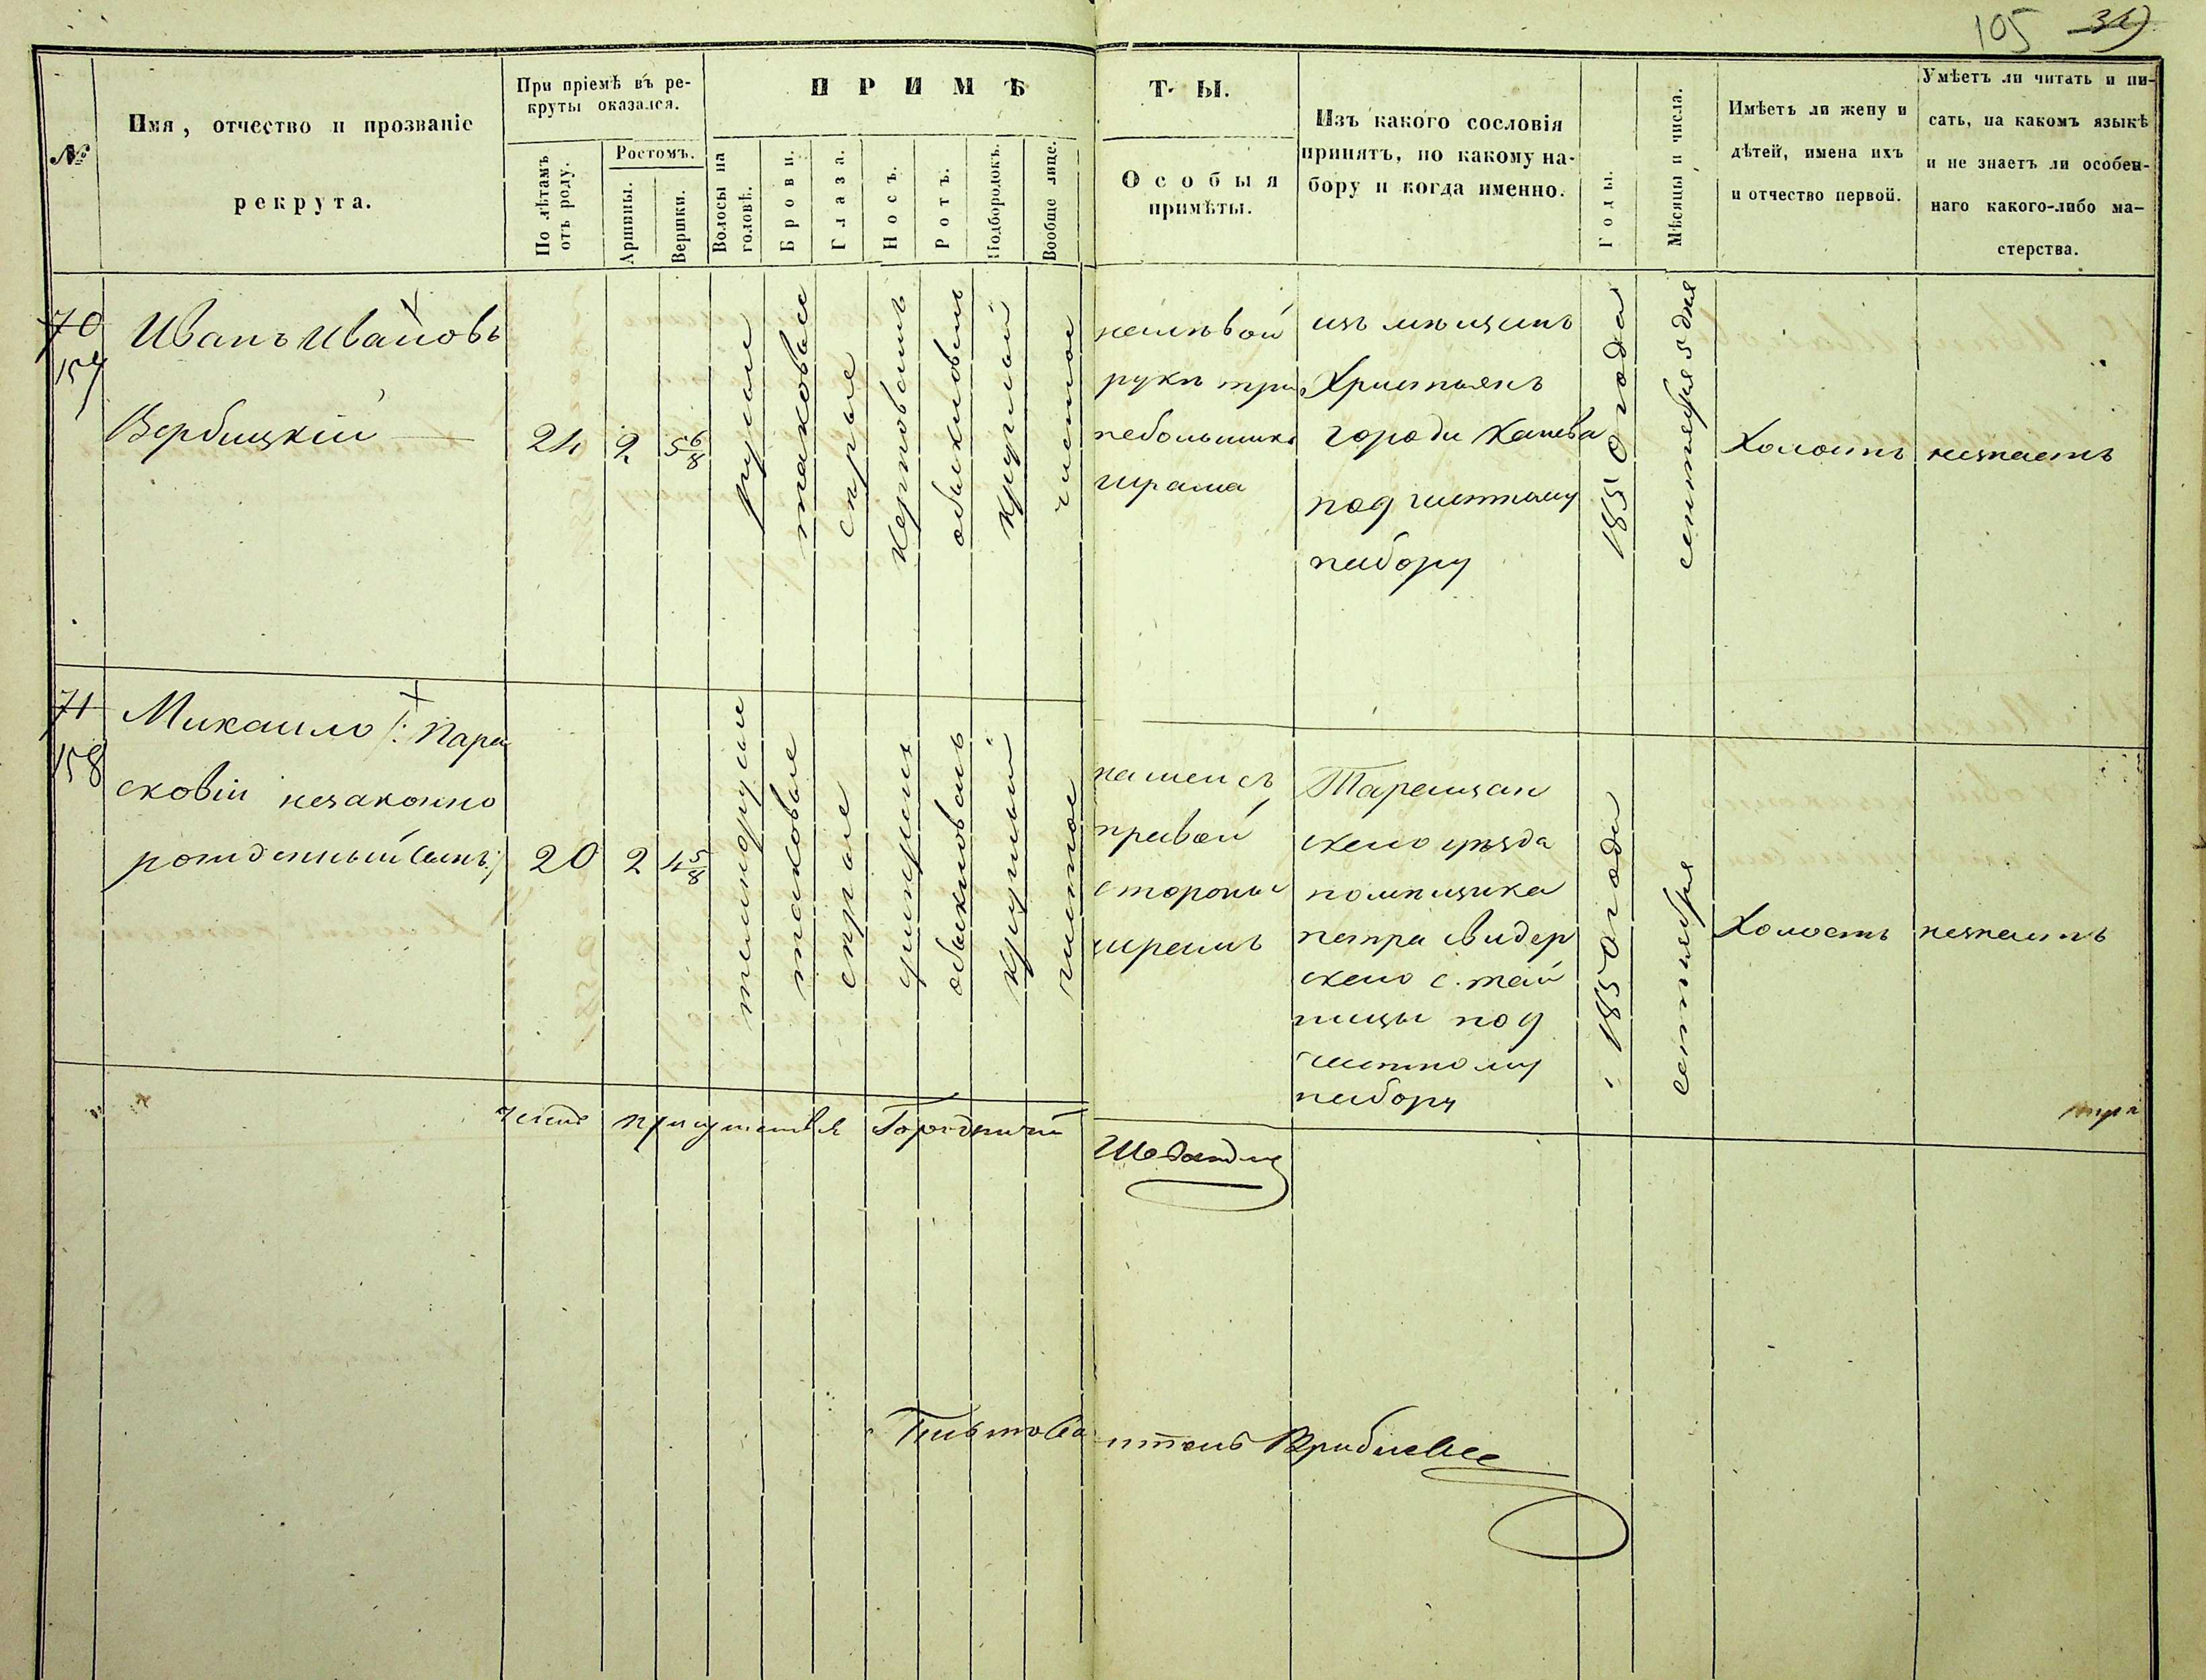 105 31
При пріемѣ въ ре-
круты оказался.
П Р И М Ѣ Т Ы.
№
Имя, отчество и прозваніе
рекрута.
По лѣтамъ
отъ роду.
Ростомъ.
Аршины.
Вершки.
Волосы на
головѣ.
Брови.
Глаза.
Носъ.
Ротъ.
Подбородокъ.
Вообще лице.
Особыя
примѣты.
Изъ какого сословія
принятъ, по какому на-
бору и когда именно.
Годы.
Мѣсяцы и числа.
Имѣетъ ли жену и
дѣтей, имена ихъ
и отчество первой.
Умѣетъ ли читать и пи-
сать, на какомъ языкѣ
и не знаетъ ли особен-
наго какого-либо ма-
стерства.
70
157
Иванъ Ивановъ
Вербицкій
24
2
5 6/8
русые
таковые
серые
обыкновенъ
круглый
чистое
налѣвой
рукѣ три
небольшихъ
шрама
изъ мѣщанъ
Христьянъ
города Канева
под читному
набору
1850 года
сентября 5 дня
Холостъ
незнаетъ
71
158
Михаило /: Пара
сковіи незаконно
рожденный сынъ:/
20
2
4 5/8
темнорусые
таковые
серые
обыкновенъ
круглый
чистое
на шеи съ
правой
стороны
шрамъ
Таращан
скаго уѣзда
помѣщика
петра свидер
скаго с. тай
ницы под
читному
набору
1850 года
сентября
Холостъ
незнаетъ
Членъ присутствія Городничій